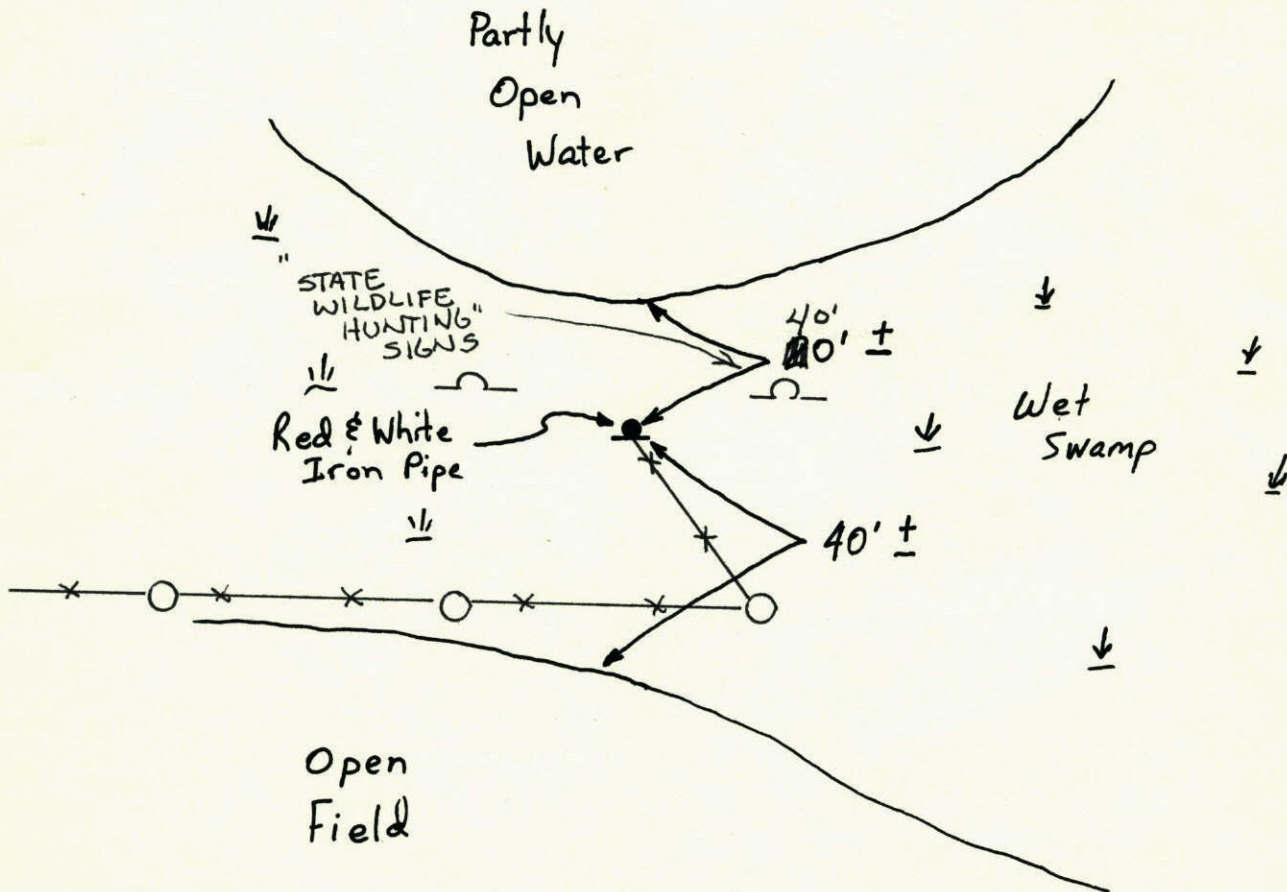 Partly
Open
Water
"STATE
WILDLIFE
HUNTING"
SIGNS
40'
0' ±
Red & White
Iron Pipe
Wet
Swamp
40' ±
Open
Field